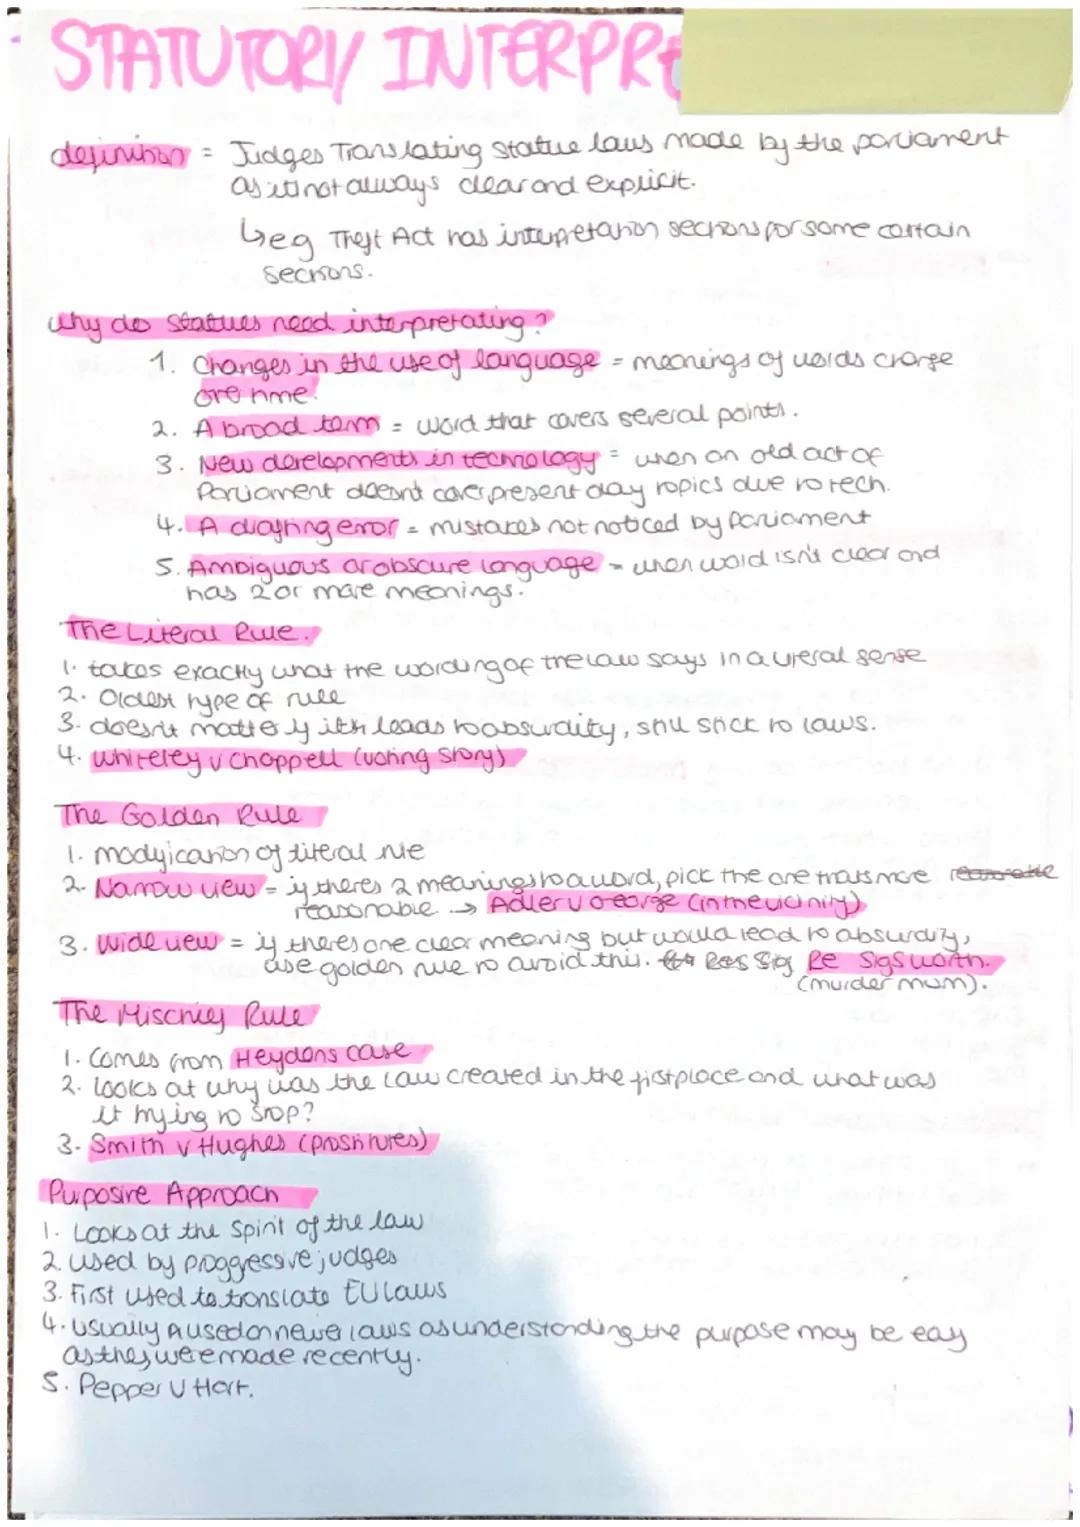 STATUTORY INTERPRE
definition = Judges Translating statue laws made by the parliament
as it not always clear and explicit.
↳ eg Theft Act has interpretation sections for some certain
sections.
why do statues need interpretating?
1. Changes in the use of language = meanings of words change
over time.
2. A broad term = word that covers several points.
3. New developments in technology = when an old act of
Parliament doesn't cover present day topics due to tech.
4. A drafting error = mistakes not noticed by Parliament
5. Ambiguous or obscure language - when word isn't clear and
has 2 or more meanings.
The Literal Rule.
1. takes exactly what the wording of the law says in a literal sense
2. Oldest type of rule
3. doesn't matter if it leads to absurdity, still stick to laws.
4. Whiteley v Chappell (voting story)
The Golden Rule
1. modification of literal rule
2. Narrow view = if theres 2 meanings to a word, pick the one thats more
reasonable → Adler v George (in the vicinity)
3. Wide view = if theres one clear meaning but would lead to absurdity,
use golden rule to avoid this. Res Sig Re Sigsworth.
(murder mum).
The Mischief Rule
1. Comes from Heydons case
2. looks at why was the law created in the first place and what was
it trying to stop?
3. Smith v Hughes (prostitutes)
Purposive Approach
1. Looks at the Spirit of the law
2. used by proggressive judges
3. First used to translate EU laws
4. usually used on newer laws as understanding the purpose may be easy
as they were made recently.
5. Pepper V Hart.